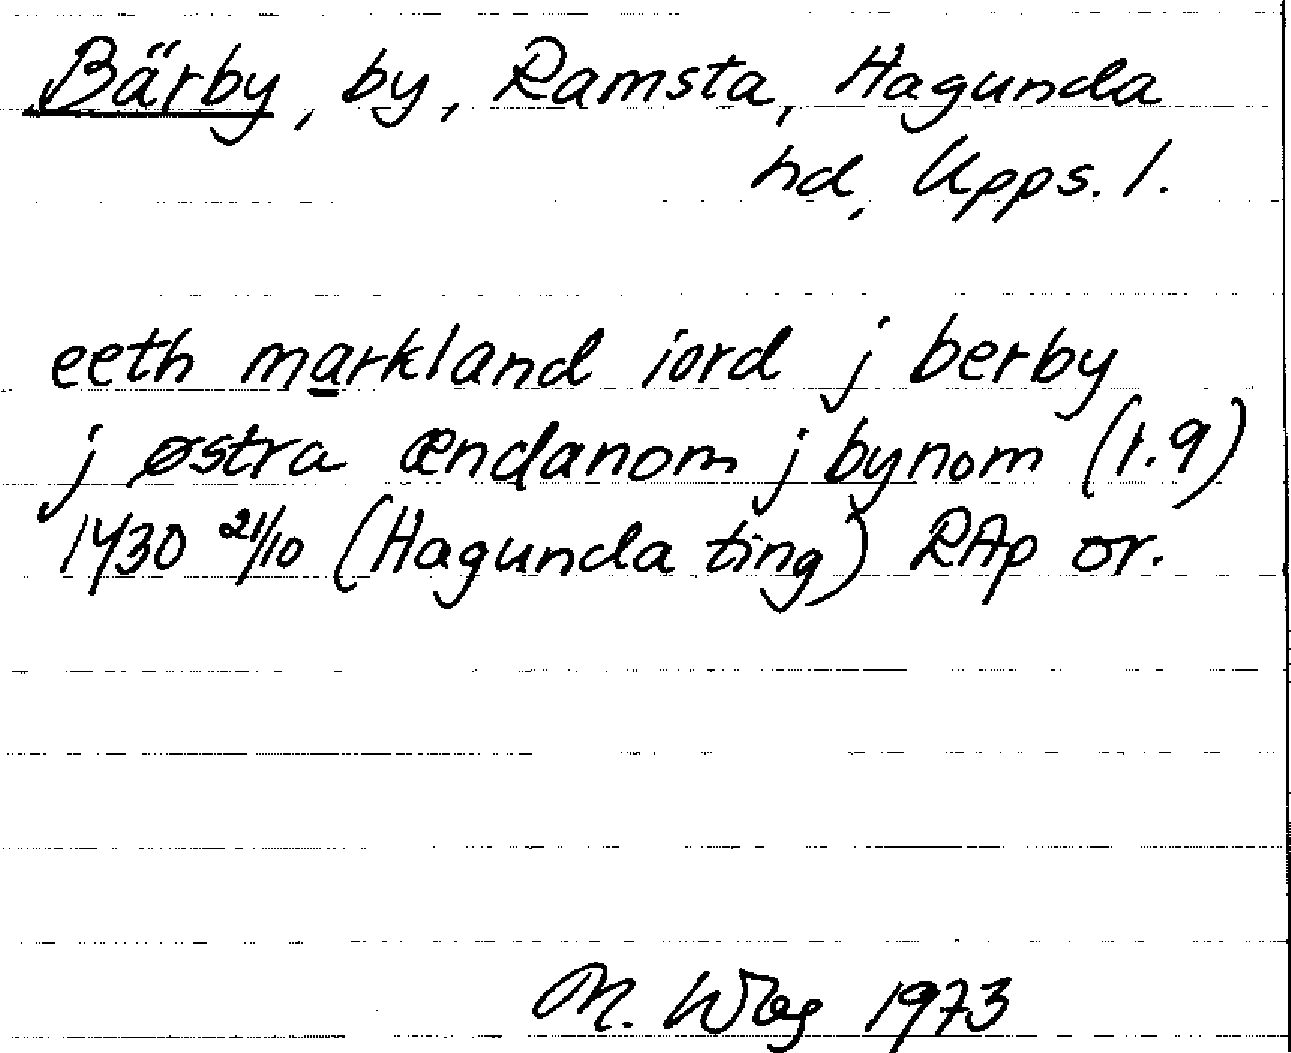 Bärby, by, Ramsta, Hagunda
hd, Upps. l.
eeth markland iord j berby
j østra ændanom j bynom (r.9)
1430 21/10 (Hagunda ting) RAp or.
M. 1973